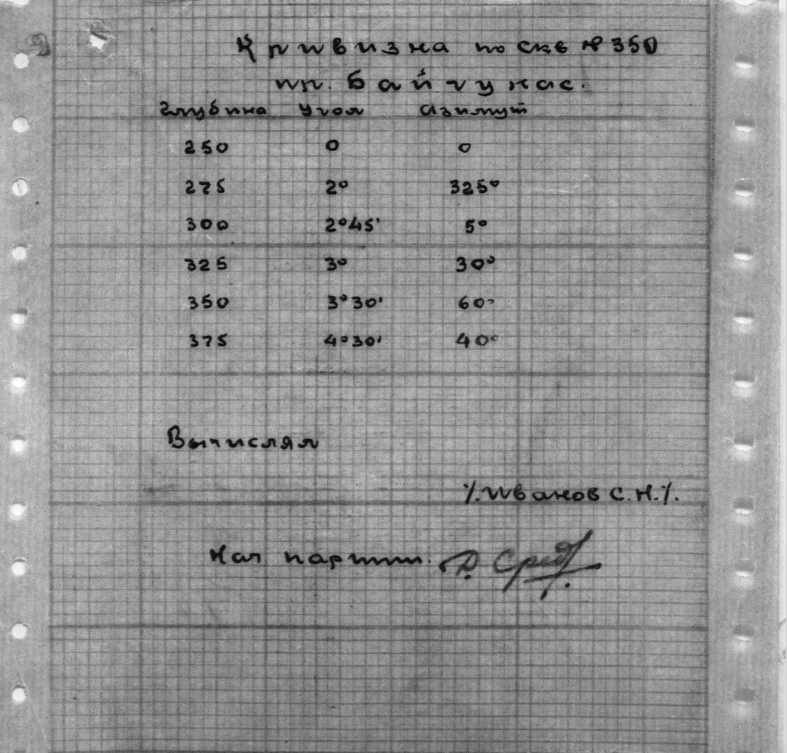 Кривизна по скв № 350
пл. Байчунас.
Глубина Угол Азимут
250 0 0
275 2° 325°
300 2°45' 5°
325 3° 30°
350 3°30' 60°
375 4°30' 40°
Вычислял
/.Иванов С.Н./.
Нач партии.